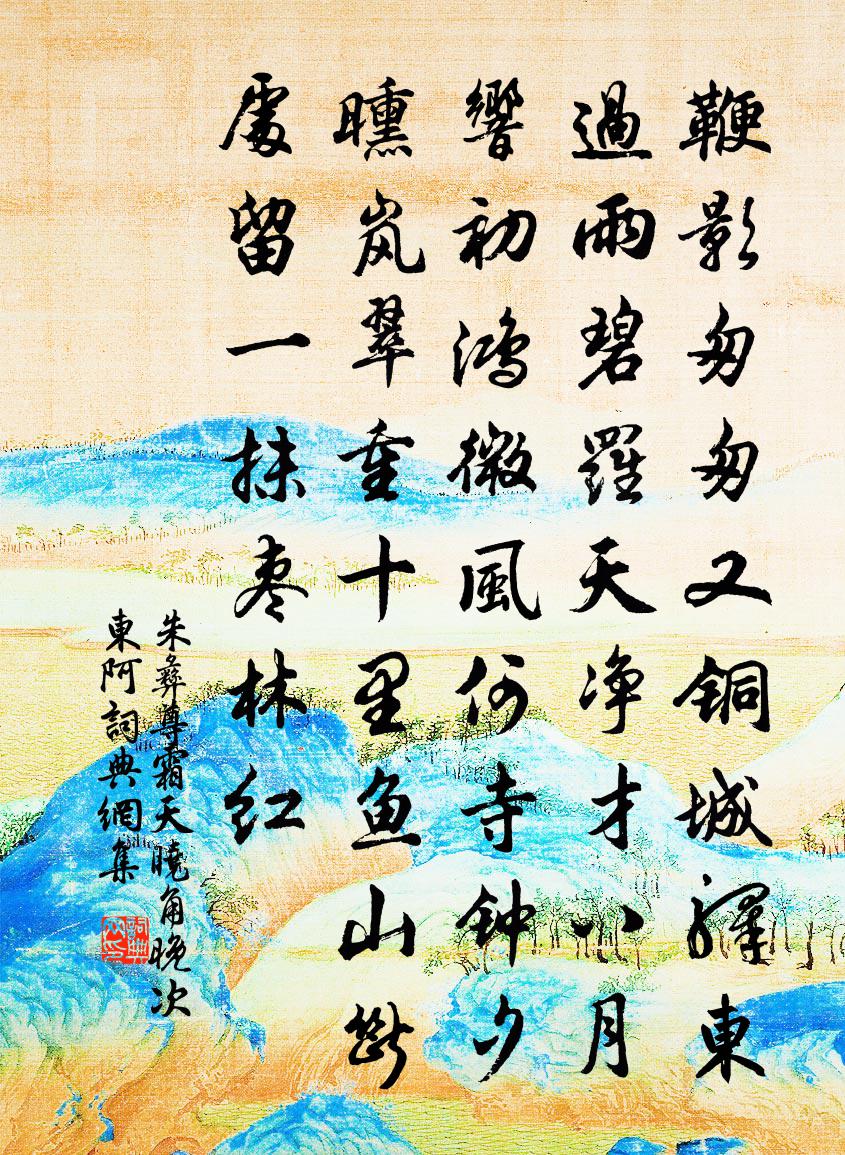 鞭影匆匆又铜城驛東
過雨碧羅天净才八月
響初鸿微風何寺钟夕
曛岚翠重十里鱼山斷
處留一抹枣林红
朱彝尊霜天曉角晚次
東阿詞典網集